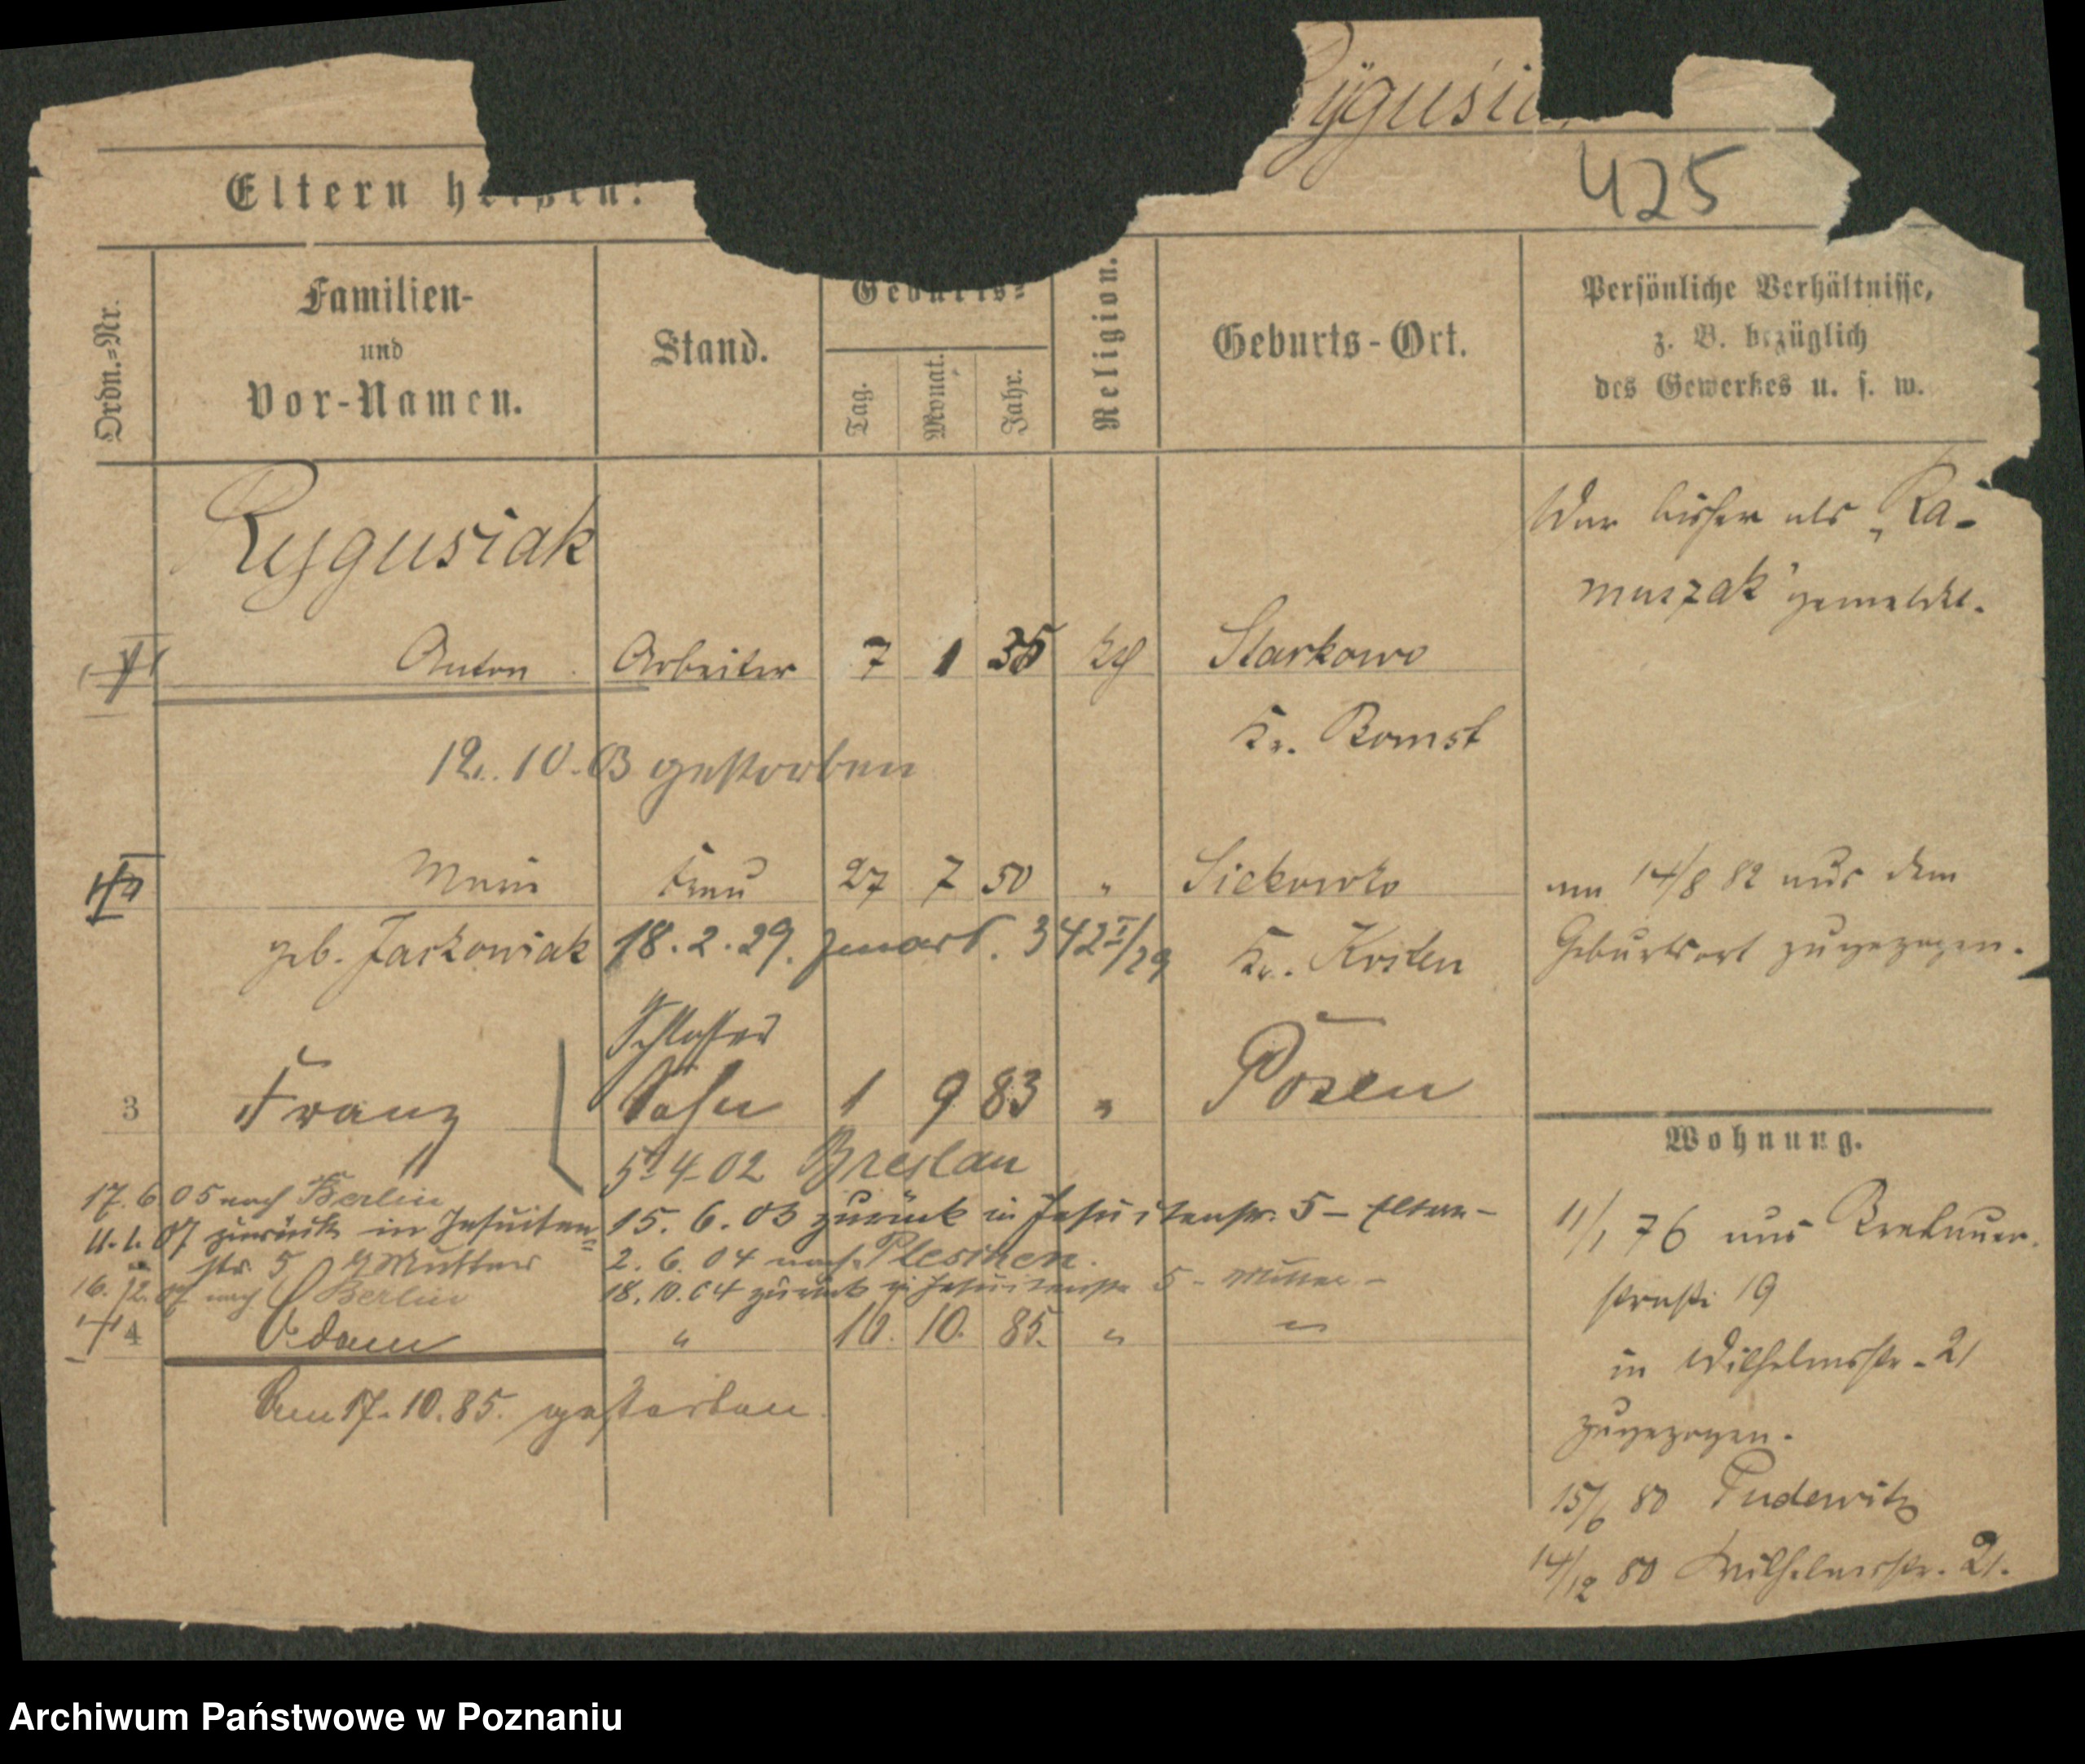 Rygusia
425
Eltern heißen:
Ordn.=Nr.
Familien-
und
Vor-Namen.
Stand.
Geburts=
Tag.
Monat.
Jahr.
Religion.
Geburts-Ort.
Persönliche Verhältnisse,
z. B. bezüglich
des Gewerkes u. s. w.
Rygusiak
War bisher als „Ra-
muszak" gemeldet.
Anton Arbeiter 7 1 35 kth Starkowo
Kr. Bomst
12. 10. 03 gestorben
Marie Frau 27 7 50 " Siekowko
am 14/8 82 aus dem
geb. Jackowiak 18. 2. 29. 342 I/29 Kr. Kosten
Geburtsort zugezogen.
Schlosser
3 Franz Sohn 1 9 83 " Posen
5. 4. 02 Breslau
Wohnung.
17. 6. 05 nach Berlin
15. 6. 03 zurück in Jesuitenstr. 5 – Eltern –
07 zurück in Jesuiten=
str. 5 Mutter
2. 6. 04 nach Pleschen.
16. 12. 07 nach Berlin
18. 10. 04 zurück in Jesuitenstr. 5 – Mutter –
4 Adam " 10. 10. 85. " "
Am 17. 10. 85. gestorben.
11/1 76 aus Breslauer-
straße 19
in Wilhelmstr. 21
zugezogen.
15/6 80 Pudewitz
14/12 80 Wilhelmstr. 21.
Archiwum Państwowe w Poznaniu